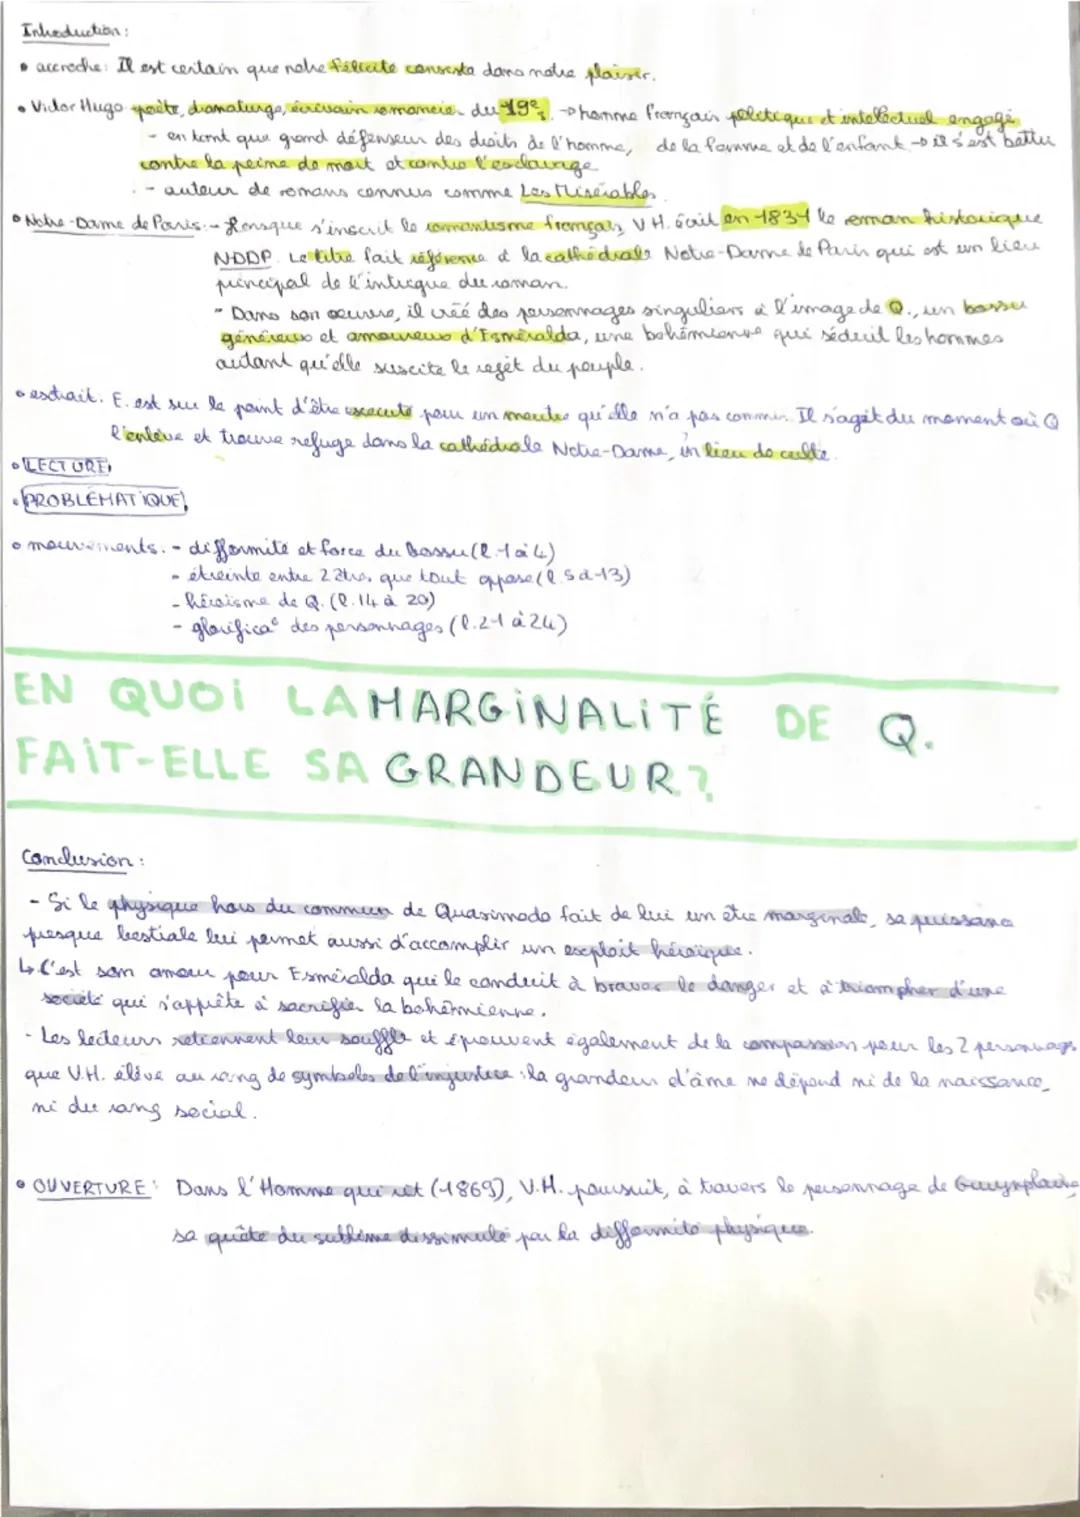 Introduction :
• accroche : Il est certain que notre félicité consista dans notre plaisir.
• Victor Hugo poète, dramaturge, écrivain romancier du 19e s. → homme français politique et intellectuel engagé
- en tant que grand défenseur des droits de l'homme, de la femme et de l'enfant → il s'est battu
contre la peine de mort et contre l'esclavage
- auteur de romans connus comme Les Misérables.
• Notre-Dame de Paris :- Lorsque s'inscrit le romantisme français, V.H. écrit en 1831 le roman historique
NDDP. Le titre fait référence à la cathédrale Notre-Dame de Paris qui est un lieu
principal de l'intrigue du roman.
- Dans son oeuvre, il créé des personnages singuliers à l'image de Q., un bossu
généreux et amoureux d'Esméralda, une bohémienne qui séduit les hommes
autant qu'elle suscite le rejet du peuple.
• extrait : E. est sur le point d'être executé pour un meutre qu'elle n'a pas commis. Il s'agit du moment où Q
l'enlève et trouve refuge dans la cathédrale Notre-Dame, un lieu de culte.
• LECTURE
• PROBLÉMATIQUE
• mouvements : - difformité et force du bossu (l.1 à 4)
- étreinte entre 2 êtres que tout oppose (l.5 à 13)
- héroïsme de Q. (l.14 à 20)
- glorifica° des personnages (l.21 à 24)
EN QUOI LA MARGINALITÉ DE Q.
FAIT-ELLE SA GRANDEUR ?
Conclusion :
- Si le physique hors du commun de Quasimodo fait de lui un être marginale, sa puissance
presque bestiale lui permet aussi d'accomplir un exploit héroïque.
↳ C'est son amour pour Esméralda qui le conduit à braver le danger et à triompher d'une
société qui s'apprête à sacrifier la bohémienne.
- Les lecteurs retiennent leur souffle et éprouvent également de la compassion pour les 2 personnages
que V.H. élève au rang de symboles de l'injustice : la grandeur d'âme ne dépend ni de la naissance,
ni du rang social.
• OUVERTURE : Dans l'Homme qui rit (1869), V.H. poursuit, à travers le personnage de Gwynplaine
sa quête du sublime dissimulé par la difformité physique.